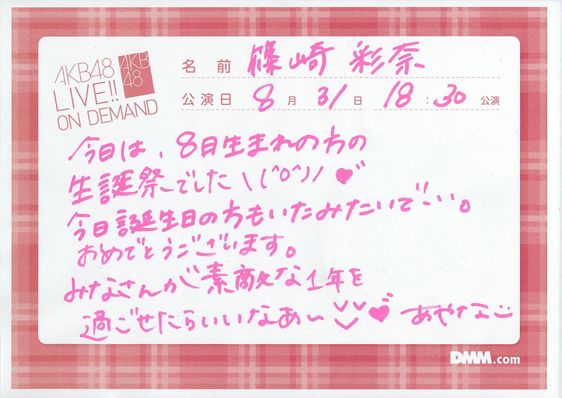 AKB48
LIVE!!
ON DEMAND
AKB
48
名前 篠崎 彩奈
公演日 8月31日 18:30 公演
今日は、8月生まれの方の
生誕祭でした\(^o^)/♥
今日誕生日の方もいたみたいで…。
おめでとうございます。
みなさんが素敵な1年を
過ごせたらいいなあ〜 ♥ あやなこ
DMM.com